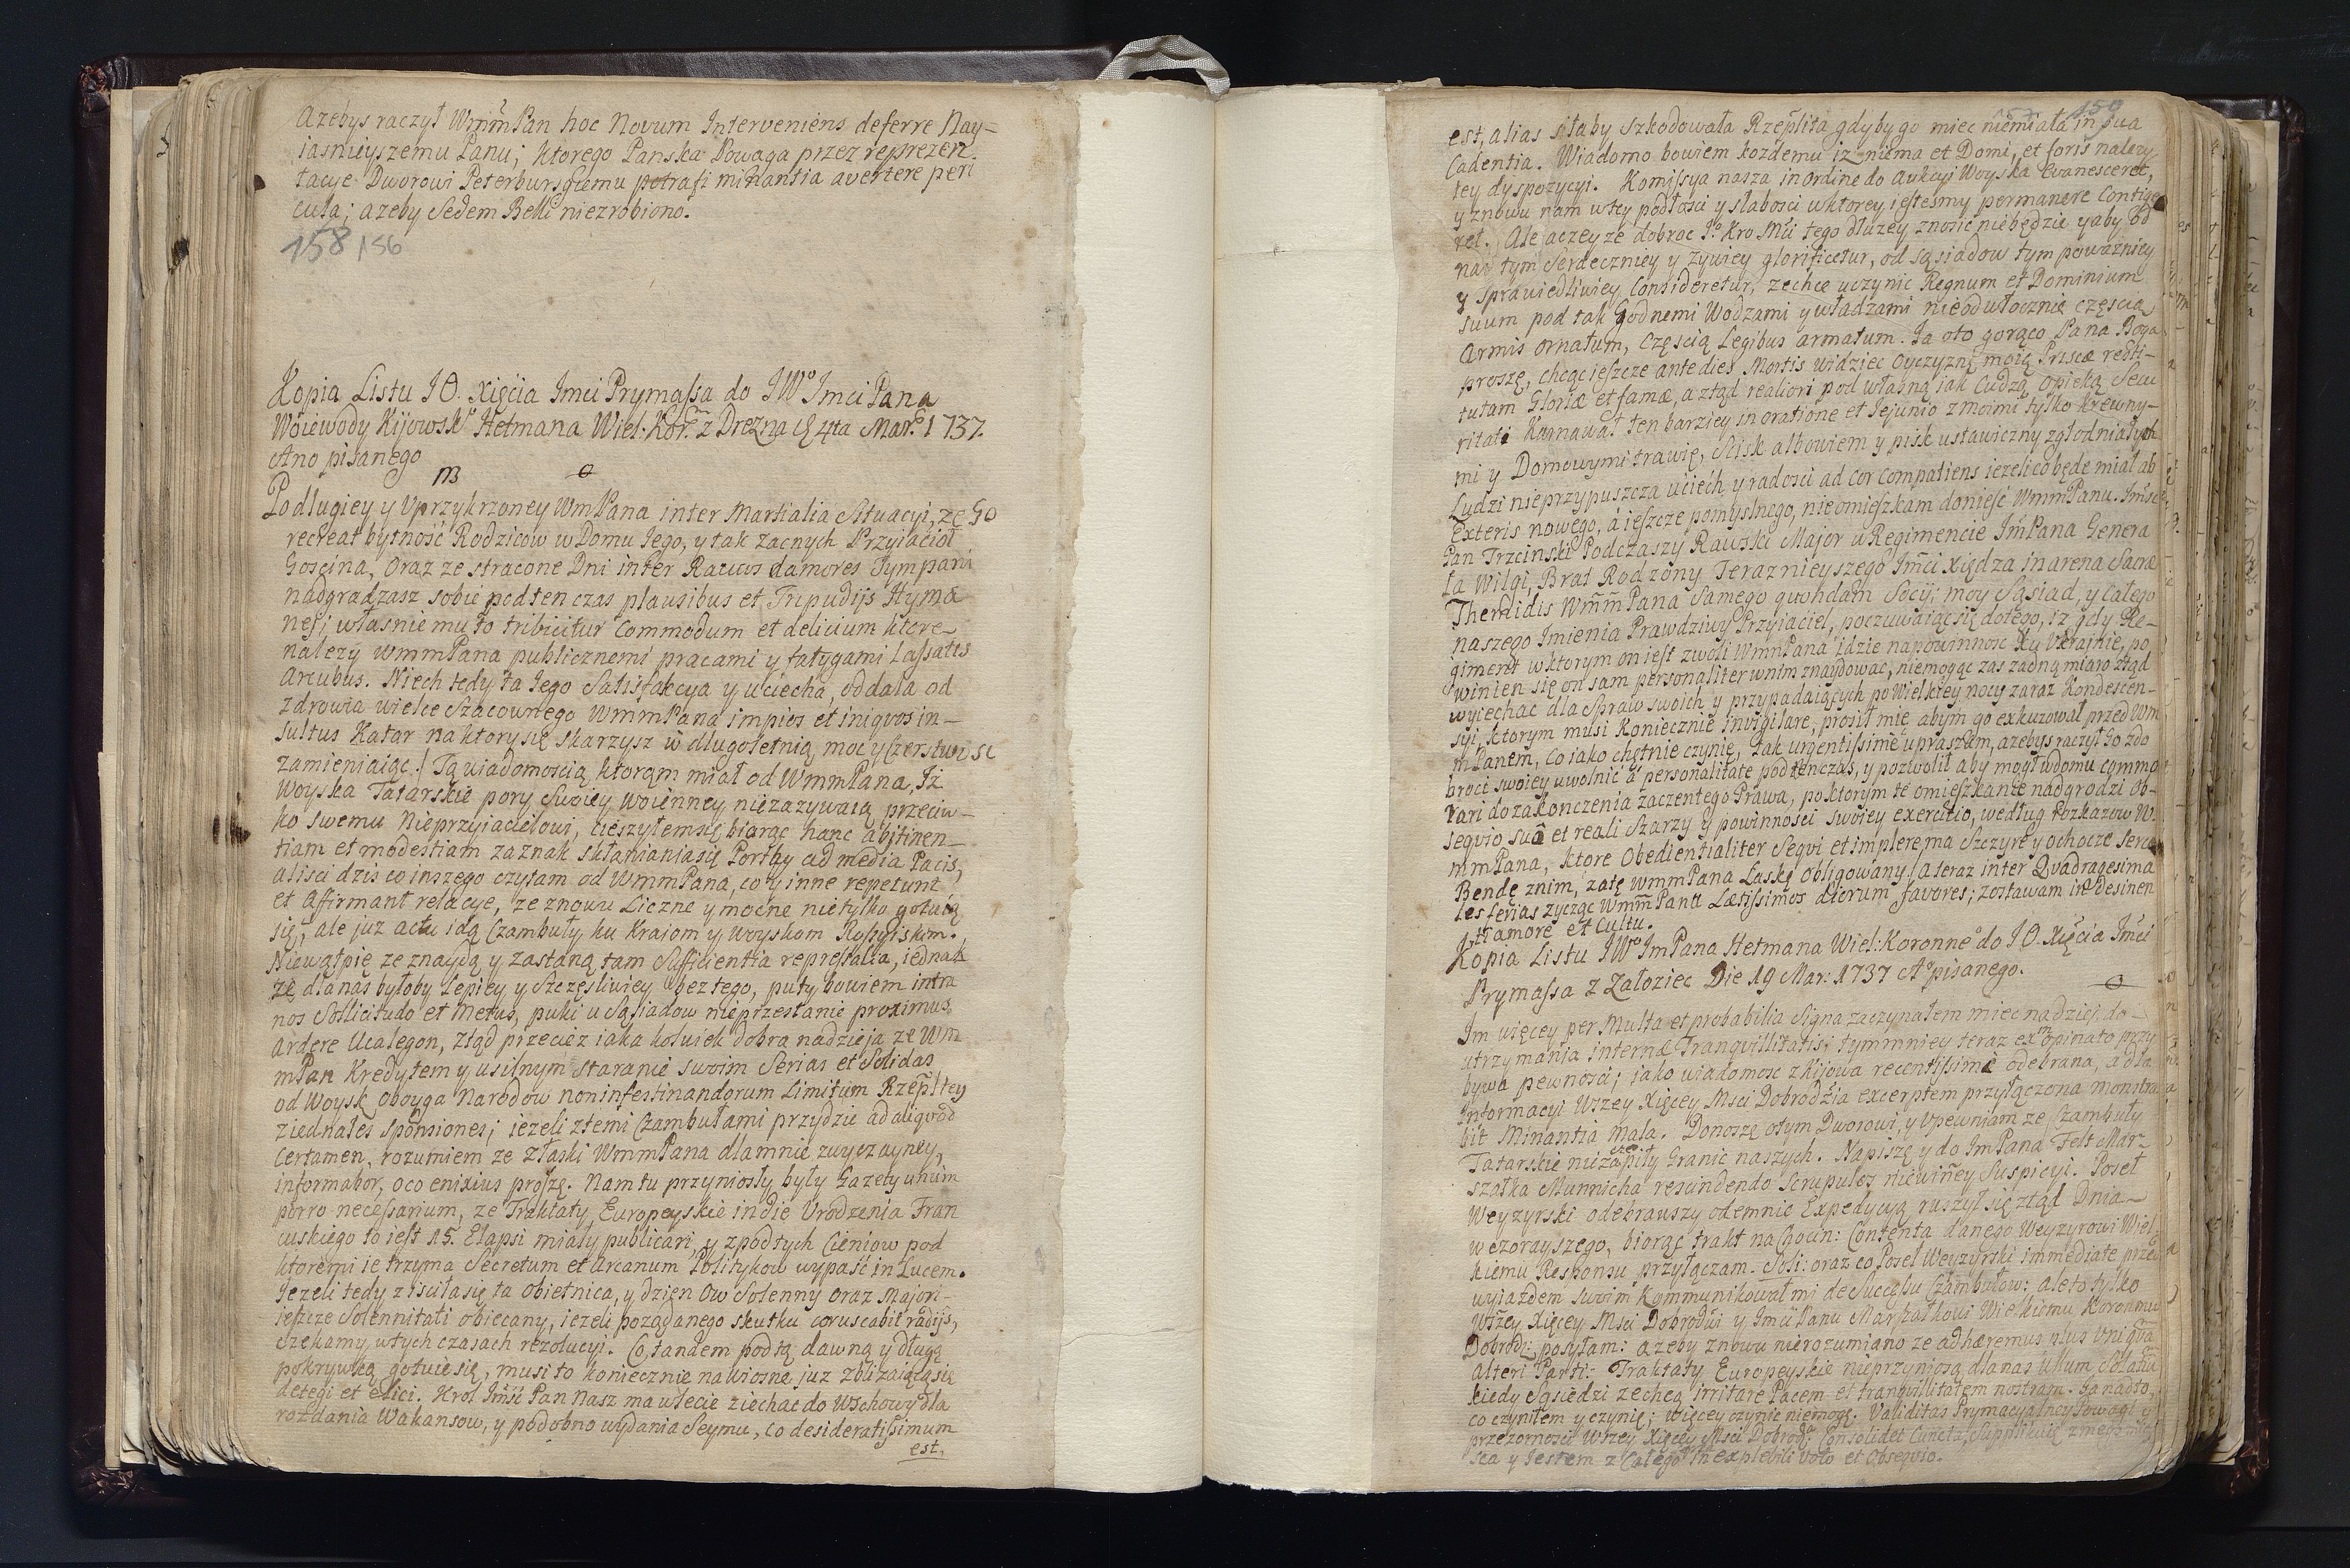 Azebys raczył WmmPan hoc Novum Interveniens deferre Nay-
iasnieyszemu Panu; ktorego Panska Powaga przez reprezen-
tacye Dworowi Peterburskiemu potrafi minantia avertere peri
cula; azeby Sedem Belli niezrobiono.
158 156
Kopia Listu JO. Xięcia Imci Prymassa do JWo Imci Pana
Woiewody Kijowsko Hetmana Wiel: Kor: z Drezna 4ta Mar: 1737.
Ano pisanego
Po dlugiey y Uprzykrzoney WmPana inter Martialia Situacyi, ze Go
recreat bytność Rodzicow w Domu Jego, y tak zacnych Przyiacioł
Goscina, Oraz ze stracone Dni inter Raucos clamores Tympani
nadgradzasz sobie podten czas plausibus et Tripudijs Hymæ
nei; własnie mu to tribuitur Commodum et delicium ktore
nalezy WmmPana publicznemi pracami y fatygami Lassatis
Arcubus. Niech tedy ta Jego Satisfakcya y uciecha, oddala od
zdrowia wielce Szacownego WmmPana impios et iniqvos in-
sultus Katar na ktory się skarzysz w dlugoletnią moc y Czerstwosc
zamieniaiąc. Tą wiadomoscią, ktorąm miał od WmmPana, Iż
Woyska Tatarskie pory Swoiey woienney niezazywaią przeciw-
ko swemu Nieprzyiacielowi, cieszyłemsię biorąc hanc abstinen-
tiam et modestiam zaznak skłanianiasię Porthy ad media Pacis,
alisci dzis co inszego czytam od WmmPana, co y inne repetunt
et Affirmant relacye, ze znowu Liczne y mocne nietylko gotuią
się, ale juz actu idą Czambuły ku Kraiom y Woyskom Rossyiskim.
Niewątpię ze znaydą y zastaną tam Sufficientia repressalia, iednak
ze dlanas byłoby Lepiey y Szczęsliwiey bez tego, puty bowiem intra
nos Sollicitudo et Metus, puki u Sąsiadow nieprzestanie proximus
ardere Ucalegon, Ztąd przecież iaka kolwiek dobra nadzieja ze Wm
mPan Kredytem y usilnym Staranie swoim Serias et Solidas
od Woysk oboyga Narodow noninfestinandorum Limitum Rzeplitey
ziednałes sponsiones; iezeli ztemi Czambułami przydzie ad aliqvod
Certamen, rozumiem ze złaski WmmPana dlamnie zwyczayney,
informabor, oco enixius proszę. Nam tu przyniosły były Gazety unum
porro necessarium, ze Traktaty Europeyskie in die Urodzenia Fran
cuskiego to iest 15. Elapsi miały publicari, y zpod tych Cieniow pod
ktoremi ie trzyma Secretum et Arcanum Politykow wypaść in Lucem.
Jezeli tedy ziscilasię ta obietnica, y dzien ow Solenny oraz Majori-
ieszcze Solennitati obiecany, iezeli pożądanego skutku coruscabit radijs,
Czekamy wtych czasach rezolucyi. Co tandem pod tą dawną y długą
pokrywką gotuie się, musi to koniecznie na wiosnę juz zblizaiącąsię
detegi et elici. Krol Imść Pan Nasz ma w lecie ziechać do Wschowy dla
rozdania Wakansow, y podobno wydania Seymu, co desideratissimum
est,
159
est, alias siłaby szkodowała Rzeplita gdyby go miec niemiała in sua
Cadentia. Wiadomo bowiem kozdemu iz niema et Domi, et foris nalezy
tey dyspozycyi. Komissya nasza in Ordine do Aukcyi Woyska Evanesceret,
y znowu nam w tey podłosci y slabosci w ktorey iestesmy permanere Contige
ret. Ale aczey ze dobroc Jo Kro Mci tego dłuzey znosic niebędzie y aby od
nas tym Serdeczniey y zywiey glorificetur, od sąsiadow tym powazniey
y sprawiedliwiey Consideretur, zechce uczynic Regnum et Dominium
suum pod tak Godnemi Wodzami y władzami nieodwłocznie częscią
Armis ornatum, Częscią Legibus armatum. Ja oto gorąco Pana Boga
proszę, chcąc ieszcze ante dies Mortis widziec oyczyznę moię Priscæ resti-
tutam Gloriæ et famæ, a ztąd realiori pod własną iak Cudzą opieką Secu
ritati. Karnawał ten barziey in oratione et Jejunio z moimi tylko Krewny-
mi y Domowymi trawię, Scisk albowiem y pisk ustawiczny zgłodniałych
Ludzi nieprzypuszcza uciech y radosci ad Cor Compatiens iezeli co będe miał ab
Exteris nowego, á ieszcze pomyslnego, nieomieszkam doniesć WmmPanu. Imść
Pan Trzcinski Podczaszy Rawski Major w Regimencie ImPana Genera
ła Wilgi, Brat Rodzony Teraznieyszego Imci Xiędza in arena Sacræ
Themidis WmmPana Samego qwondam Socij; moy Sąsiad, y Całego
naszego Imienia Prawdziwy Przyiaciel, poczuwaiąc się dotego, iz gdy Re-
giment w ktorym on iest zwoli WmmPana idzie napowinnosc Ku Ukrainie, po
winien się on sam personaliter wnim znaydowac, niemogąc zas zadną miarą ztąd
wyiechac dla Spraw swoich y przypadaiących po Wielkiey nocy zaraz Kondescen-
syi, ktorym musi Koniecznie invigilare, prosił mię abym go exkuzował przed Wm
mPanem, Co iako chętnie czynię, tak urgentissime upraszam, azebys raczył Go zdo
broci swoiey uwolnić a personalitate podtenczas, y pozwolił aby mogł w domu commo
rari do zakonczenia zaczentego Prawa, po ktorym te omieszkanie nadgrodzi ob-
seqvio suo et reali Szarzy y powinnosci swoiey exercitio, według rozkazow W.
mmPana, ktore Obedientialiter Seqvi et implere ma Szczyre y ochocze serce
Bendę znim, zatę WmmPana Laskę obligowany. A teraz inter Qvadragesima
les ferias zycząc WmmPanu Lætissimos dierum favores; zostawam in desinen
ti amore et Cultu.
Kopia Listu JWo ImPana Hetmana Wiel: Koronneo do JO. Xięcia Imci
Prymassa z Załoziec Die 19 Mar: 1737 Ao pisanego.
Im więcey per Multa et probabilia Signa zaczynałem miec nadziei, do-
utrzymania internæ Tranqvillitatis; tymmniey teraz ex inopinato przy
bywa pewnosci; iako wiadomosc z Kijowa recentissime odebrana, a dla
Informacyi Wszey Xięcey Msci Dobrodzia excerptem przyłączona monstra
bit Minantia mala. Donoszę otym Dworowi, y upewniam ze Czambuły
Tatarskie niezaczepiły Granic naszych. Napiszę y do ImPana Felt Marz
szałka Munnicha rescindendo Scrupulos niewinney Suspicyi. Poseł
Weyzyrski odebrawszy odemnie Expedycyą ruszył się ztąd Dnia
wczorayszego, biorąc trakt na Chocim: Contenta danego Weyzyrowi Wiel
kiemu Responsu przyłączam. Soli: oraz co Poseł Weyzyrski immediate przed
wyiazdem swoim Kommunikował mi de Successu Czambułow: ale to tylko
Wszey Xięcey Msci Dobrodzi y Imci Panu Marszałkowi Wielkiemu Koronmu
Dobrodz: posyłam: azeby znowu nierozumiano ze adhæremus plus uni qvam
alteri Parti: Traktaty Europeyskie nieprzyniosą dlanas Ullum Solatium
kiedy Sąsiedzi zechcą irritare Pacem et tranqvillitatem nostram. Ja nad to,
co czyniłem y czynię; więcey czynic niemogę. Validitas Prymacyalney Powagi y
przezornosci Wszey Xięcey Msci Dobrodzia Consolidet Cuncta, supplikuię z mego miey
sca y Jestem z Całego inexplebili voto et Obseqvio.